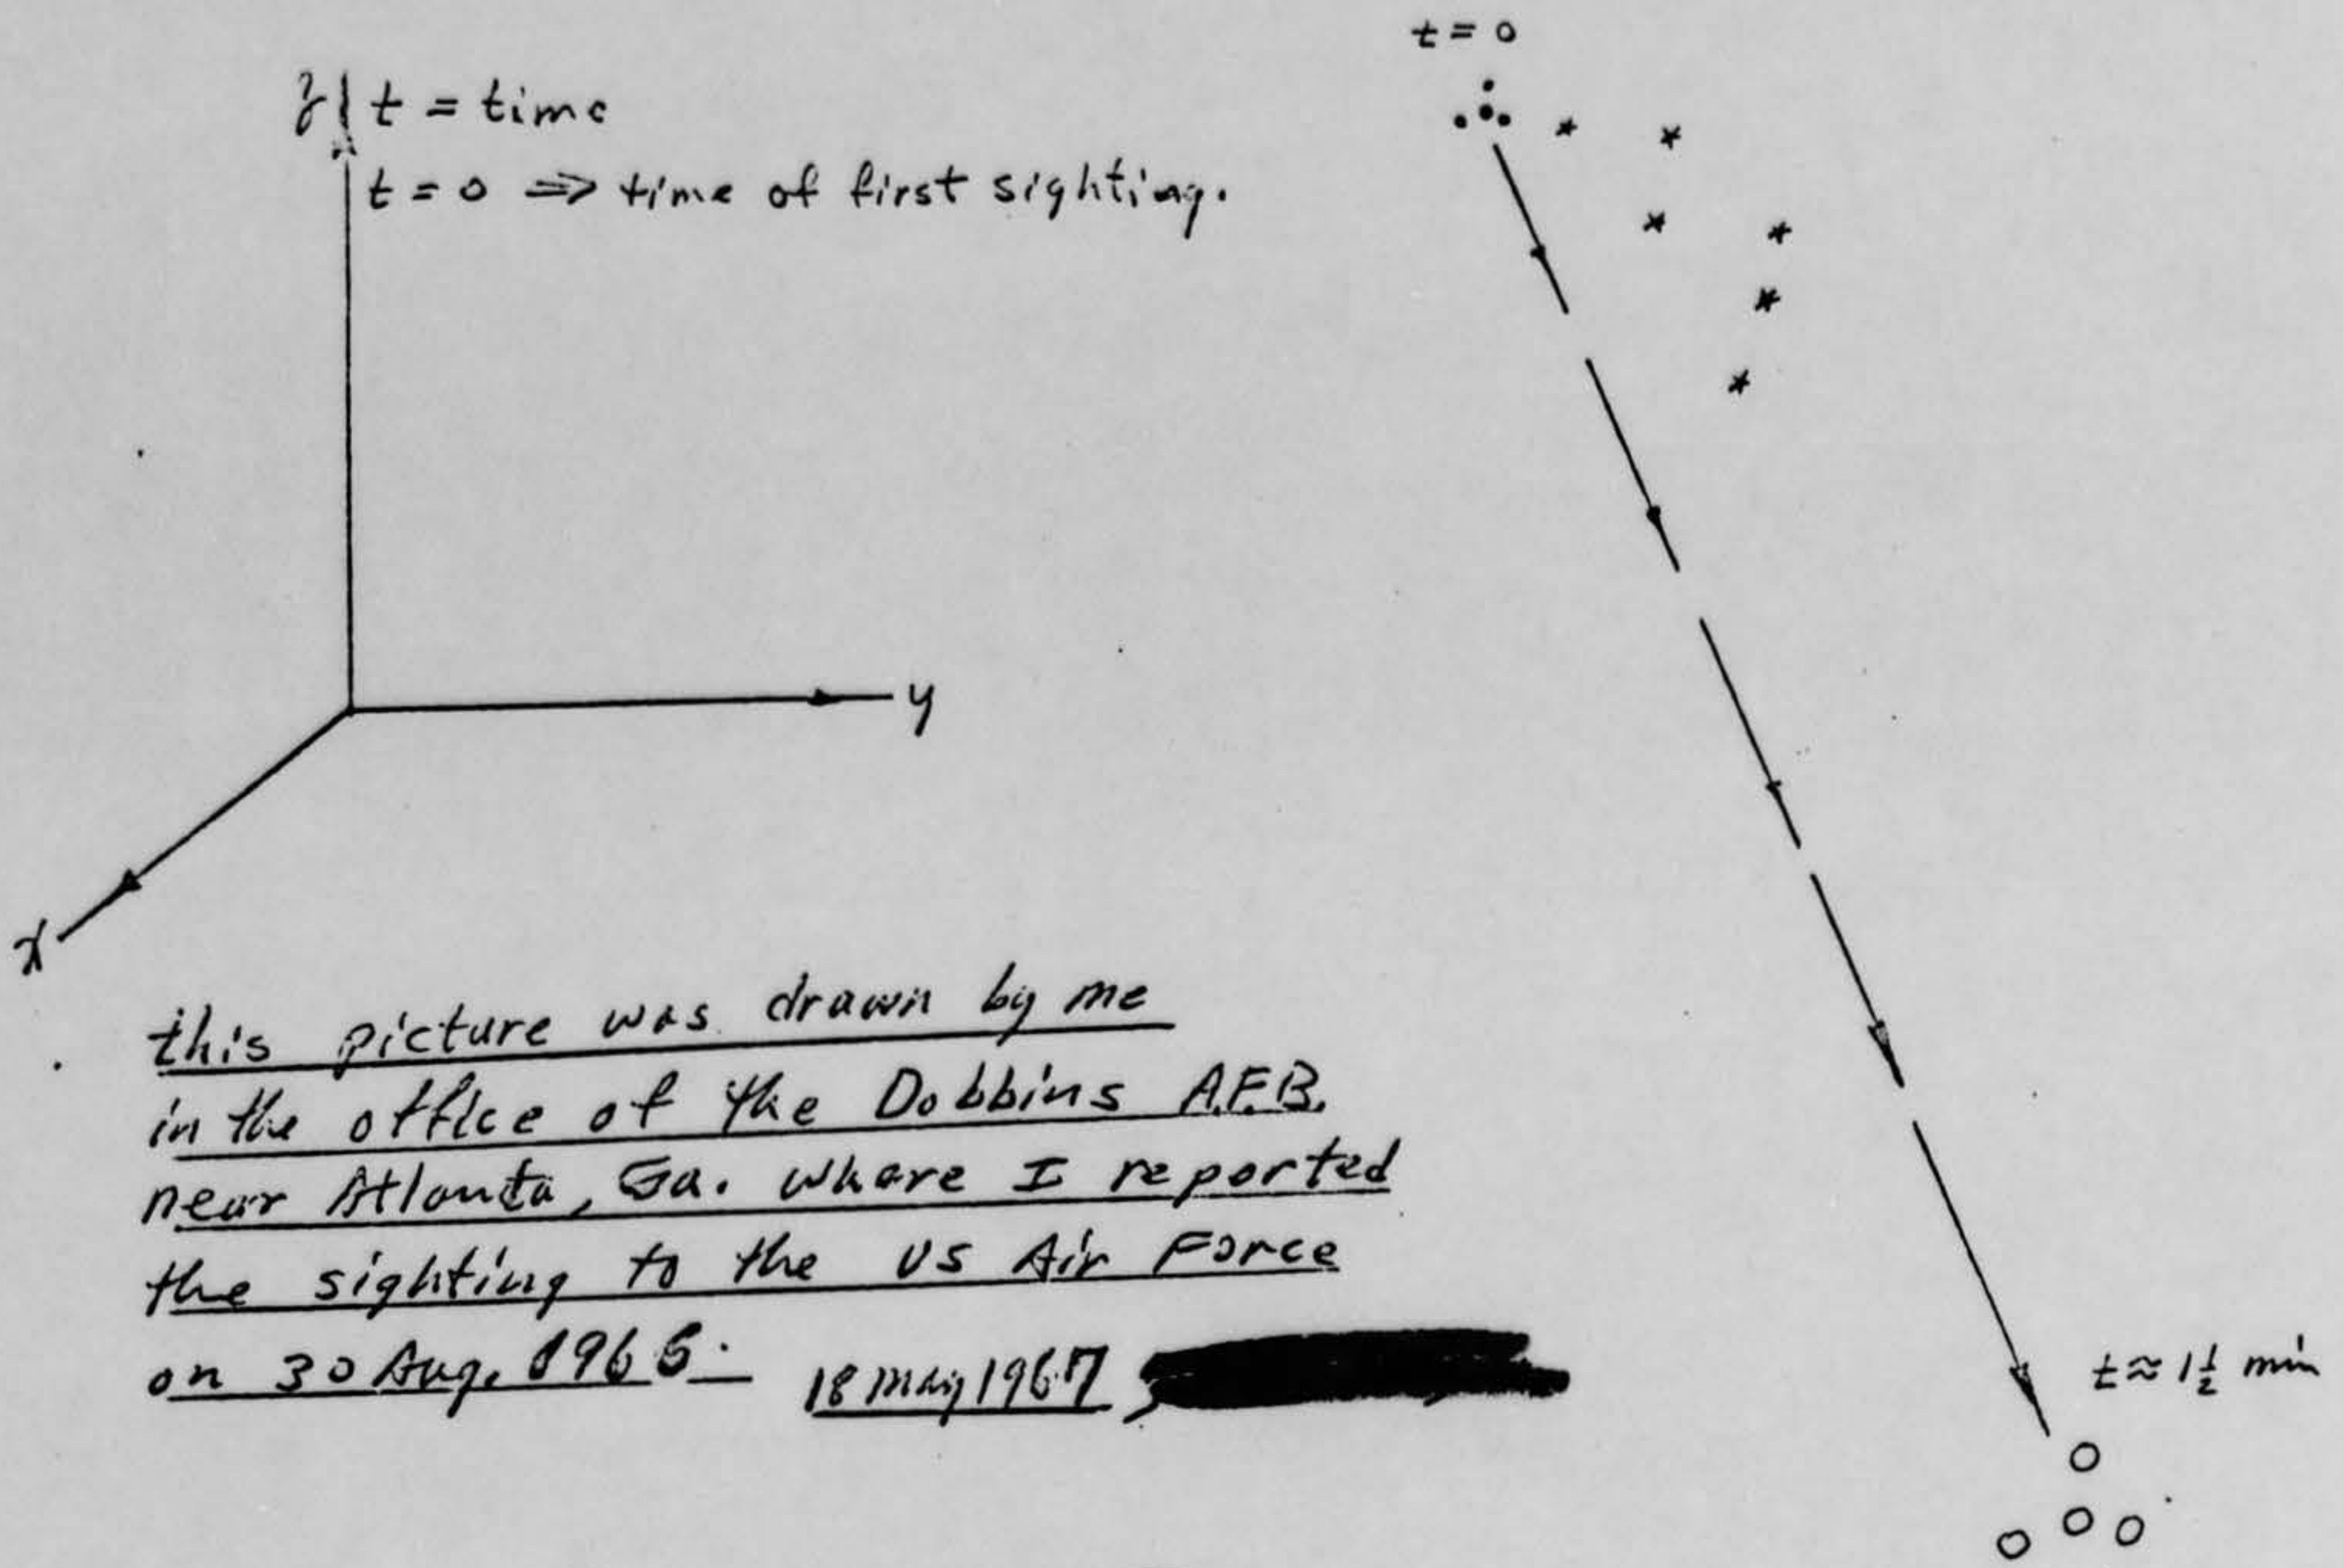 t = 0
z t = time
t = 0 ⇒ time of first sighting.
y
x
this picture was drawn by me
in the office of the Dobbins A.F.B.
near Atlanta, Ga. where I reported
the sighting to the US Air Force
on 30 Aug. 1966.
18 may 1967,
t ≈ 1½ min